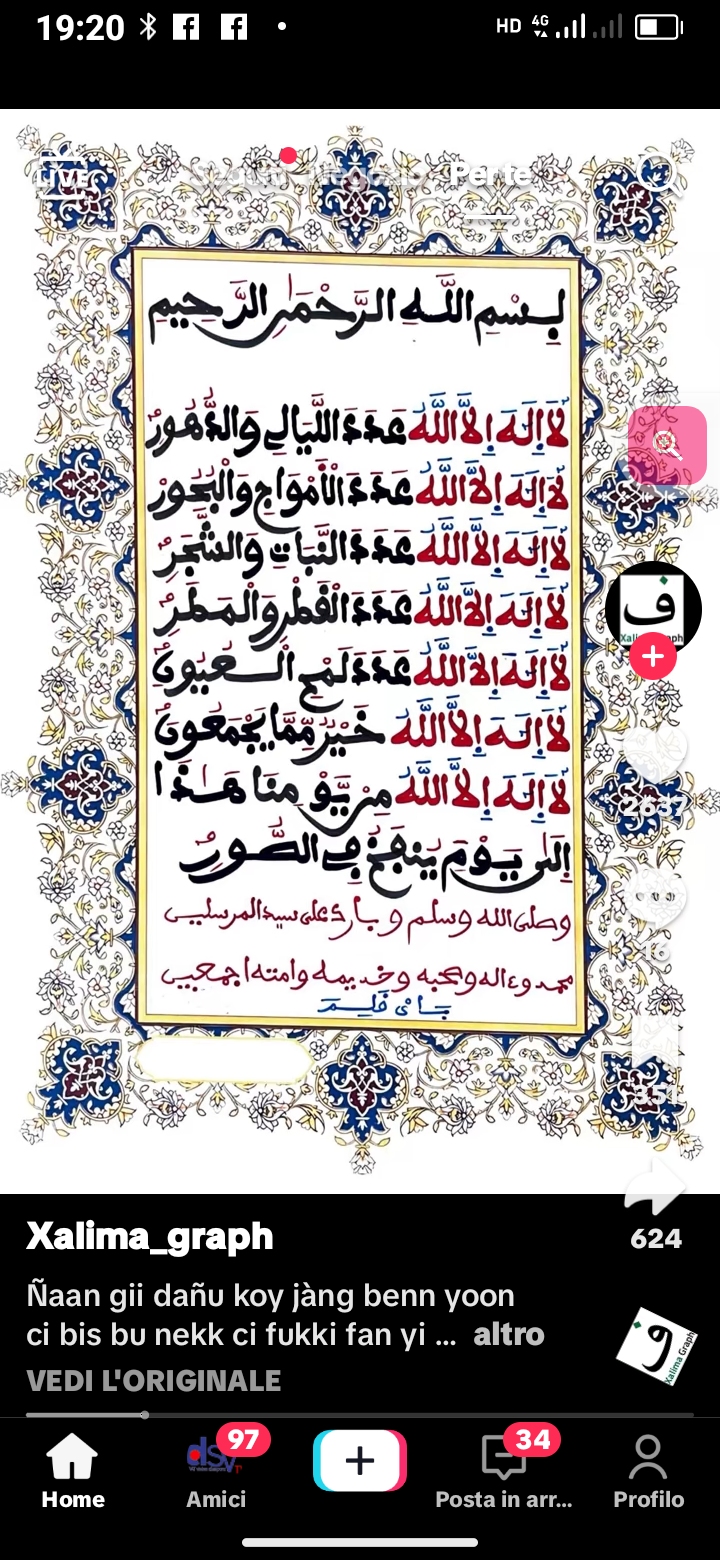 19:20
HD 4G
LIVE
Per te
بِسْمِ اللَّهِ الرَّحْمَٰنِ الرَّحِيمِ
لَا إِلَهَ إِلَّا اللَّهُ عَدَدَ اللَّيَالِي وَالدُّهُورُ
لَا إِلَهَ إِلَّا اللَّهُ عَدَدَ الْأَمْوَاجِ وَالْبُحُورُ
لَا إِلَهَ إِلَّا اللَّهُ عَدَدَ النَّبَاتِ وَالشَّجَرُ
لَا إِلَهَ إِلَّا اللَّهُ عَدَدَ الْقَطْرِ وَالْمَطَرُ
لَا إِلَهَ إِلَّا اللَّهُ عَدَدَ لَمْحِ الْعُيُونُ
لَا إِلَهَ إِلَّا اللَّهُ خَيْرٌ مِّمَّا يَجْمَعُونَ
لَا إِلَهَ إِلَّا اللَّهُ مِنْ يَوْمِنَا هَذَا
إِلَى يَوْمِ يُنْفَخُ فِي الصُّورُ
وصلى الله وسلم وبارك على سيد المرسلين
محمد وءاله وصحبه وخديمه وامته اجمعين
2637
16
351
624
Xalima_graph
Ñaan gii dañu koy jàng benn yoon
ci bis bu nekk ci fukki fan yi ... altro
VEDI L'ORIGINALE
Xalima Graph
97
34
Home
Amici
Posta in arr...
Profilo